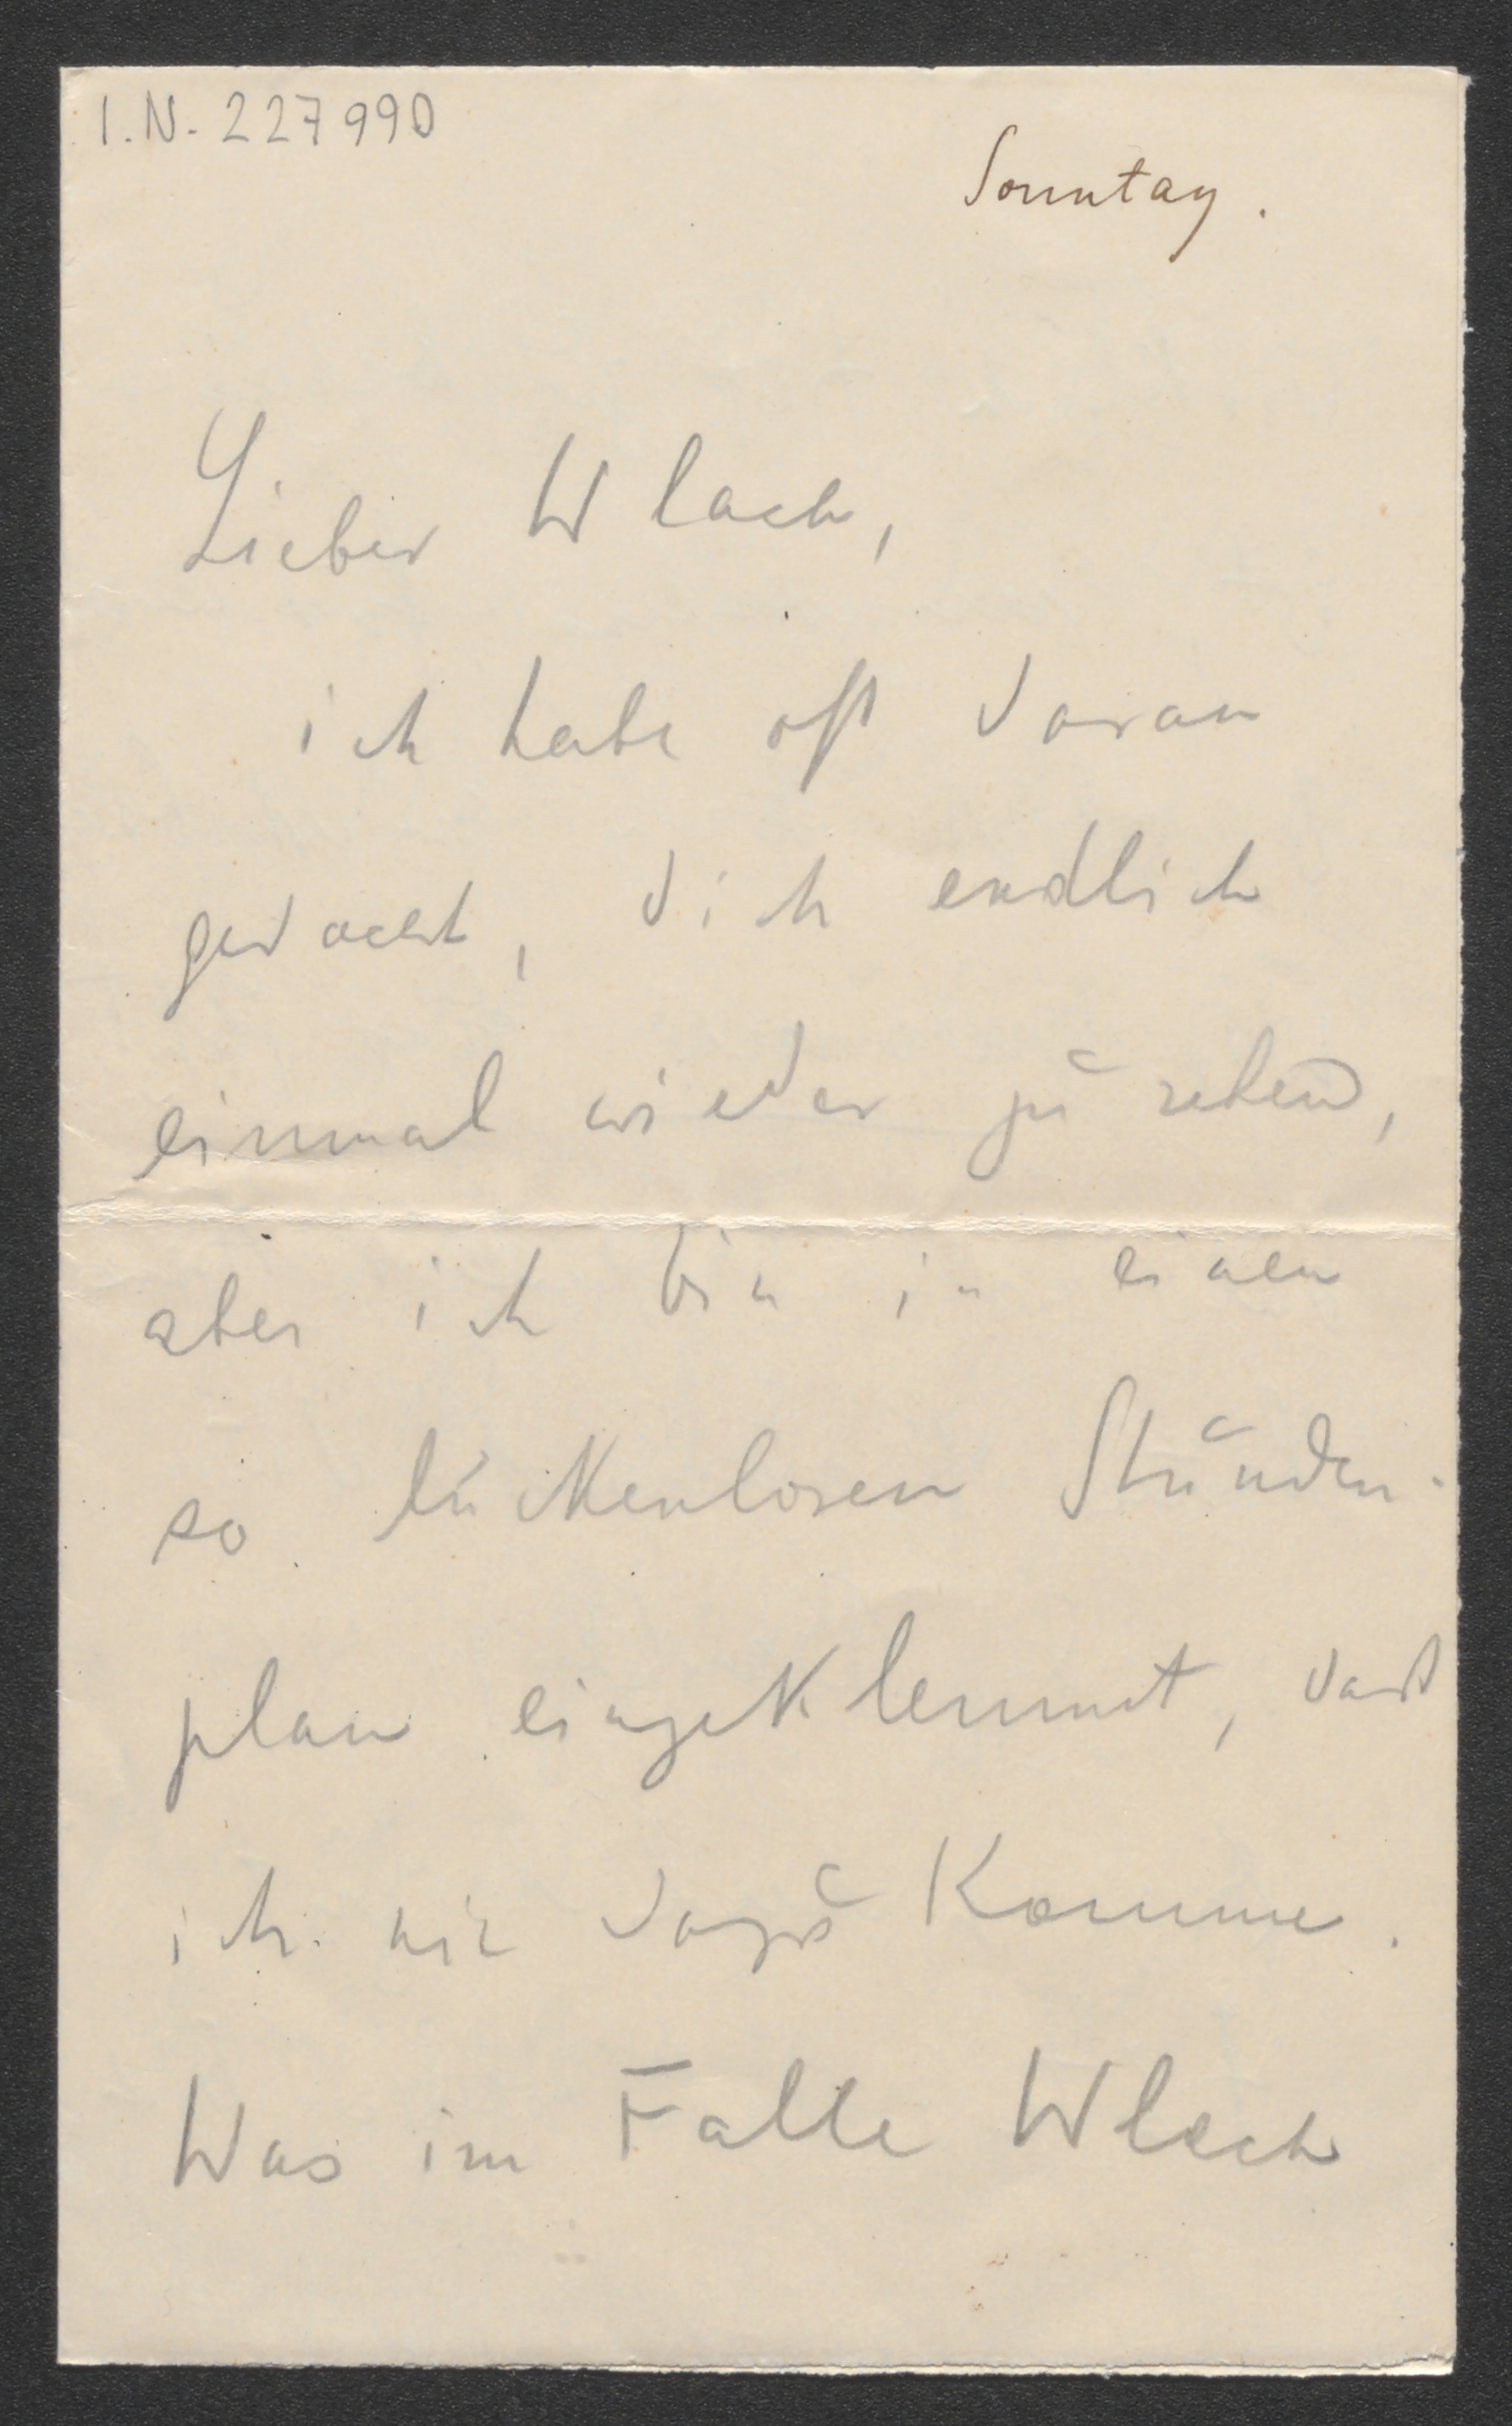 I.N. 227990
Sonntag.
Lieber Wlach,
ich habe oft daran
gedacht, dich endlich
einmal wieder zu sehen,
aber ich bin in einen
so lückenlosen Stunden-
plan eingeklemmt, daß
ich nie dazu komme.
Was im Falle Wlach